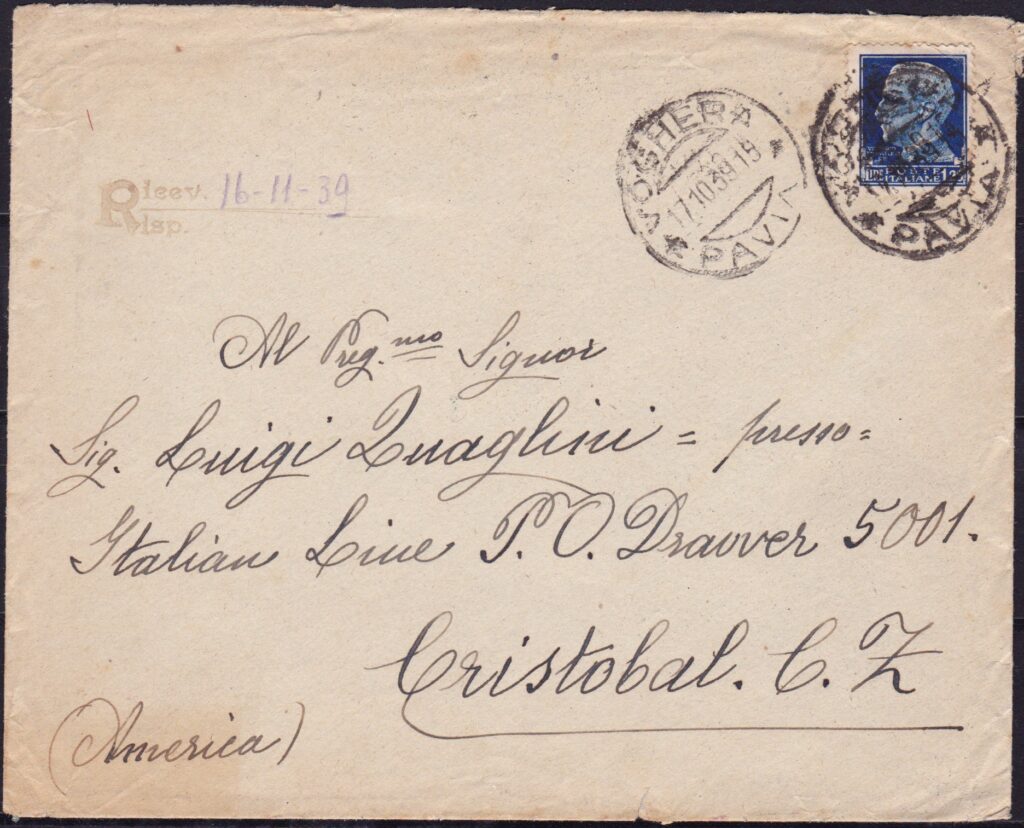 VOGHERA
17.10.39.15
PAVIA
POSTE
ITALIANE
PAVIA
Ricev. 16-11-39
Risp.
Al Preg.mo Signor
Sig. Luigi Quaglini = presso =
Italian Line P. O. Dravver 5001.
Cristobal. C. Z
(America)